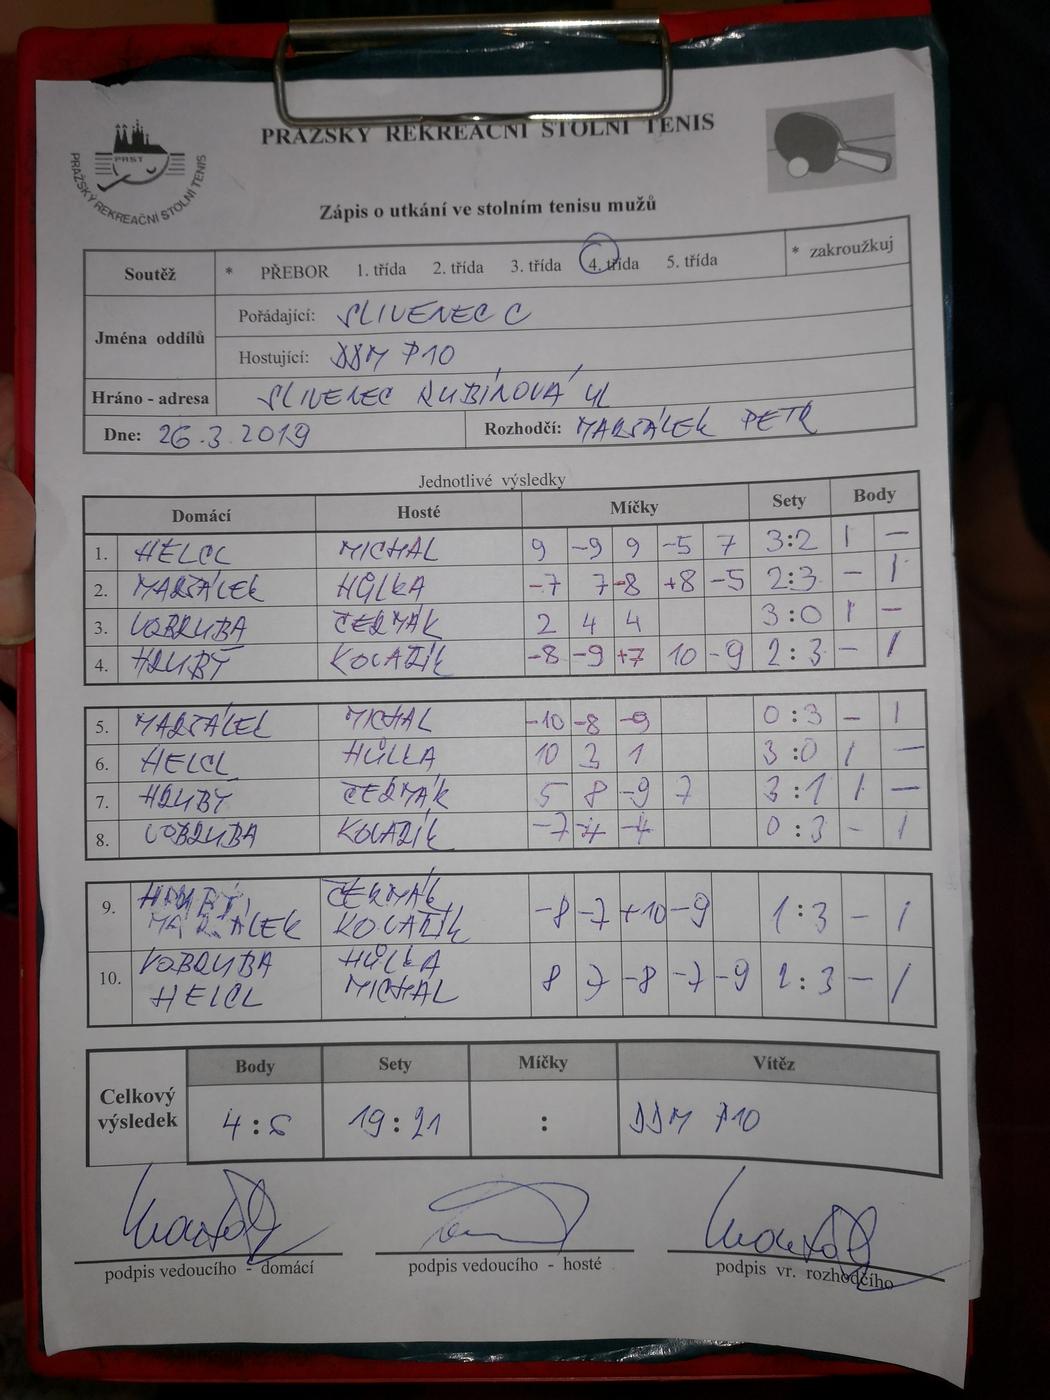 PRAŽSKÝ REKREAČNÍ STOLNÍ TENIS
PRST
PRAŽSKÝ REKREAČNÍ STOLNÍ TENIS
Zápis o utkání ve stolním tenisu mužů
Soutěž * PŘEBOR 1. třída 2. třída 3. třída 4. třída 5. třída * zakroužkuj
Jména oddílů
Pořádající: SLIVENEC C
Hostující: DDM P10
Hráno - adresa SLIVENEC RUBÍNOVÁ UL
Dne: 26.3.2019 Rozhodčí: MARŠÁLEK PETR
Jednotlivé výsledky
Domácí Hosté Míčky Sety Body
1. HELCL MICHAL 9 -9 9 -5 7 3:2 1 -
2. MARŠÁLEK HŮLKA -7 7 -8 +8 -5 2:3 - 1
3. VOBRUBA ČERMÁK 2 4 4 3:0 1 -
4. HRUBÝ KOVAŘÍK -8 -9 +7 10 -9 2:3 - 1
5. MARŠÁLEK MICHAL -10 -8 -9 0:3 - 1
6. HELCL HŮLKA 10 3 1 3:0 1 -
7. HRUBÝ ČERMÁK 5 8 -9 7 3:1 1 -
8. VOBRUBA KOVAŘÍK -7 -4 -4 0:3 - 1
9. HRUBÝ, ČERMÁK
MARŠÁLEK KOVAŘÍK -8 -7 +10 -9 1:3 - 1
10. VOBRUBA HŮLKA
HELCL MICHAL 8 7 -8 -7 -9 2:3 - 1
Celkový výsledek
Body Sety Míčky Vítěz
4:6 19:21 : DDM P10
podpis vedoucího - domácí podpis vedoucího - hosté podpis vr. rozhodčího